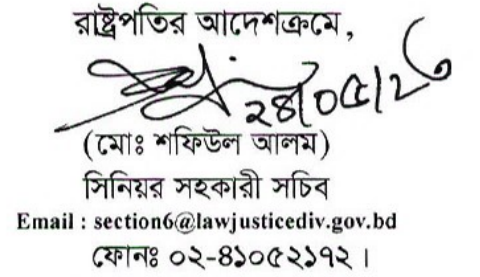 রাষ্ট্রপতির আদেশক্রমে,
২৪/০৫/২৬
(মোঃ শফিউল আলম)
সিনিয়র সহকারী সচিব
Email : section6@lawjusticediv.gov.bd
ফোনঃ ০২-৪১০৫২১৭২।